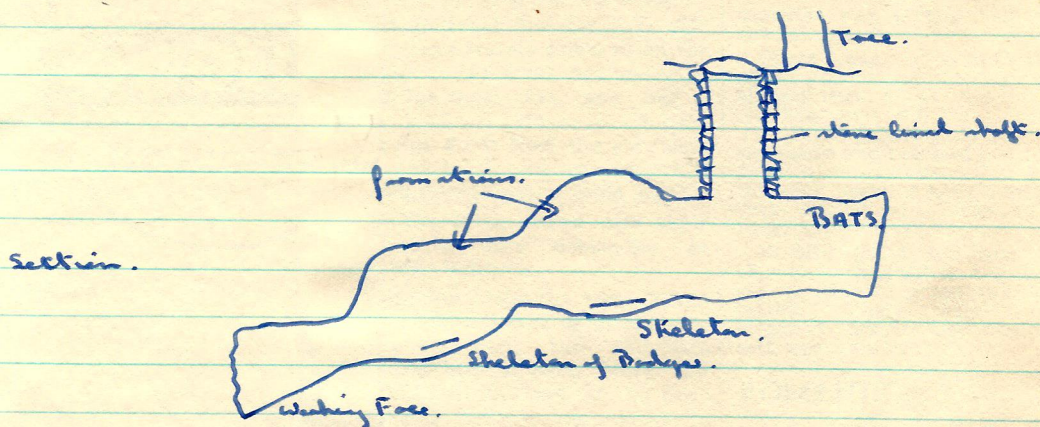 Tree.
stone lined shaft.
formations.
BATS.
Section.
Skeleton.
Skeleton of Badger.
Working Face.